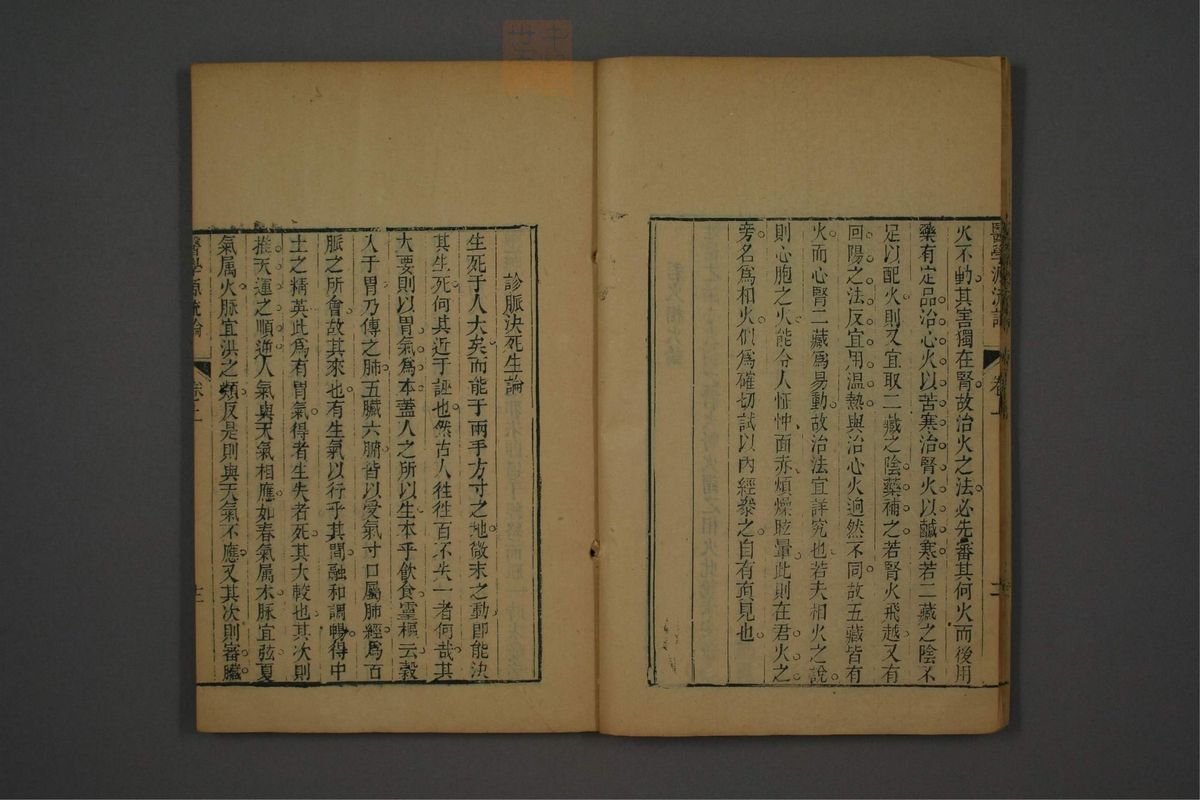 醫學源流論 卷上
火不動其害獨在腎故治火之法必先審其何火而後用
藥有定品治心火以苦寒治腎火以鹹寒若二藏之陰不
足以配火則又宜取二藏之陰藥補之若腎火飛越又有
回陽之法反宜用温熱與治心火迥然不同故五藏皆有
火而心腎二藏爲易動故治法宜詳究也若夫相火之說
則心胞之火能令人怔忡面赤煩燥眩暈此則在君火之
旁名爲相火似爲確切試以內經叅之自有眞見也
診脈決死生論
生死于人大矣而能于兩手方寸之地微末之動即能決
其生死何其近于誣也然古人往往百不失一者何哉其
大要則以胃氣爲本蓋人之所以生本乎飲食靈樞云穀
入于胃乃傳之肺五臟六腑皆以受氣寸口屬肺經爲百
脈之所會故其來也有生氣以行乎其間融和調暢得中
土之精英此爲有胃氣得者生失者死其大較也其次則
推天運之順逆人氣與天氣相應如春氣属木脈宜弦夏
氣属火脈宜洪之類反是則與天氣不應又其次則審臟
醫學源流論 卷上